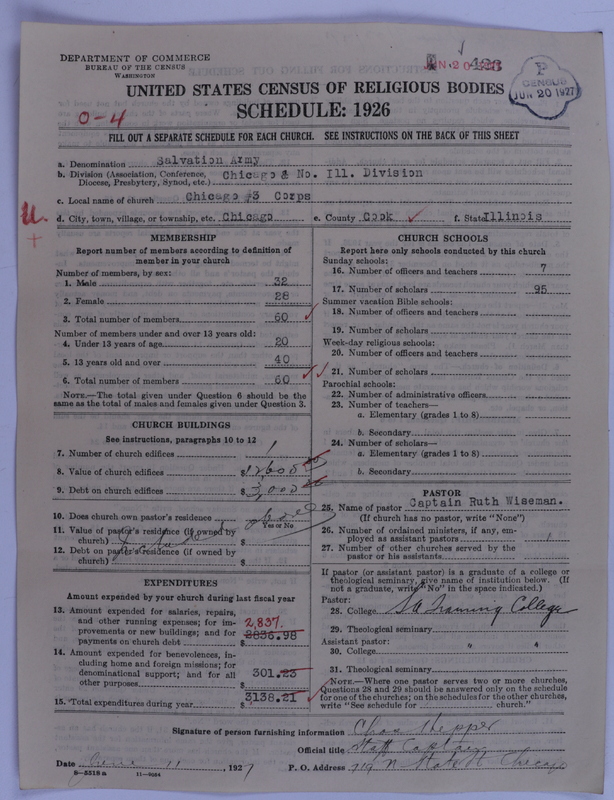 DEPARTMENT OF COMMERCE
BUREAU OF THE CENSUS
WASHINGTON
JUN 20 1927
P
CENSUS
JUN 20 1927
UNITED STATES CENSUS OF RELIGIOUS BODIES
SCHEDULE: 1926
0-4
FILL OUT A SEPARATE SCHEDULE FOR EACH CHURCH. SEE INSTRUCTIONS ON THE BACK OF THIS SHEET
a. Denomination Salvation Army
b. Division (Association, Conference, Diocese, Presbytery, Synod, etc.) Chicago & No. Ill. Division
c. Local name of church Chicago #3 Corps
d. City, town, village, or township, etc. Chicago e. County Cook f. State Illinois
MEMBERSHIP
Report number of members according to definition of
member in your church
Number of members, by sex:
1. Male 32
2. Female 28
3. Total number of members 60
Number of members under and over 13 years old:
4. Under 13 years of age 20
5. 13 years old and over 40
6. Total number of members 60
NOTE.—The total given under Question 6 should be the
same as the total of males and females given under Question 3.
CHURCH BUILDINGS
See instructions, paragraphs 10 to 12
7. Number of church edifices 1
8. Value of church edifices $12600
9. Debt on church edifices $3,000
10. Does church own pastor's residence
Yes or No
11. Value of pastor's residence (if owned by
church) $
12. Debt on pastor's residence (if owned by
church) $
EXPENDITURES
Amount expended by your church during last fiscal year
13. Amount expended for salaries, repairs,
and other running expenses; for im-
provements or new buildings; and for
payments on church debt $2836.98
2,837.
14. Amount expended for benevolences, in-
cluding home and foreign missions; for
denominational support; and for all
other purposes 301.23
15. Total expenditures during year $3138.21
CHURCH SCHOOLS
Report here only schools conducted by this church
Sunday schools:
16. Number of officers and teachers 7
17. Number of scholars 95
Summer vacation Bible schools:
18. Number of officers and teachers
19. Number of scholars
Week-day religious schools:
20. Number of officers and teachers
21. Number of scholars
Parochial schools:
22. Number of administrative officers
23. Number of teachers—
a. Elementary (grades 1 to 8)
b. Secondary
24. Number of scholars—
a. Elementary (grades 1 to 8)
b. Secondary
PASTOR
25. Name of pastor Captain Ruth Wiseman.
(If church has no pastor, write "None")
26. Number of ordained ministers, if any, em-
ployed as assistant pastors 1
27. Number of other churches served by the
pastor or his assistants
If pastor (or assistant pastor) is a graduate of a college or
theological seminary, give name of institution below. (If
not a graduate, write "No" in the space indicated.)
Pastor:
28. College SA Training College
29. Theological seminary
Assistant pastor:
30. College " "
31. Theological seminary
NOTE.—Where one pastor serves two or more churches,
Questions 28 and 29 should be answered only on the schedule
for one of the churches; on the schedules for the other churches,
write "See schedule for church."
Signature of person furnishing information Chas Hepper
Official title Staff
Date June 11, 1927 P. O. Address 719 N State St Chicago
8-5518a 11-9054